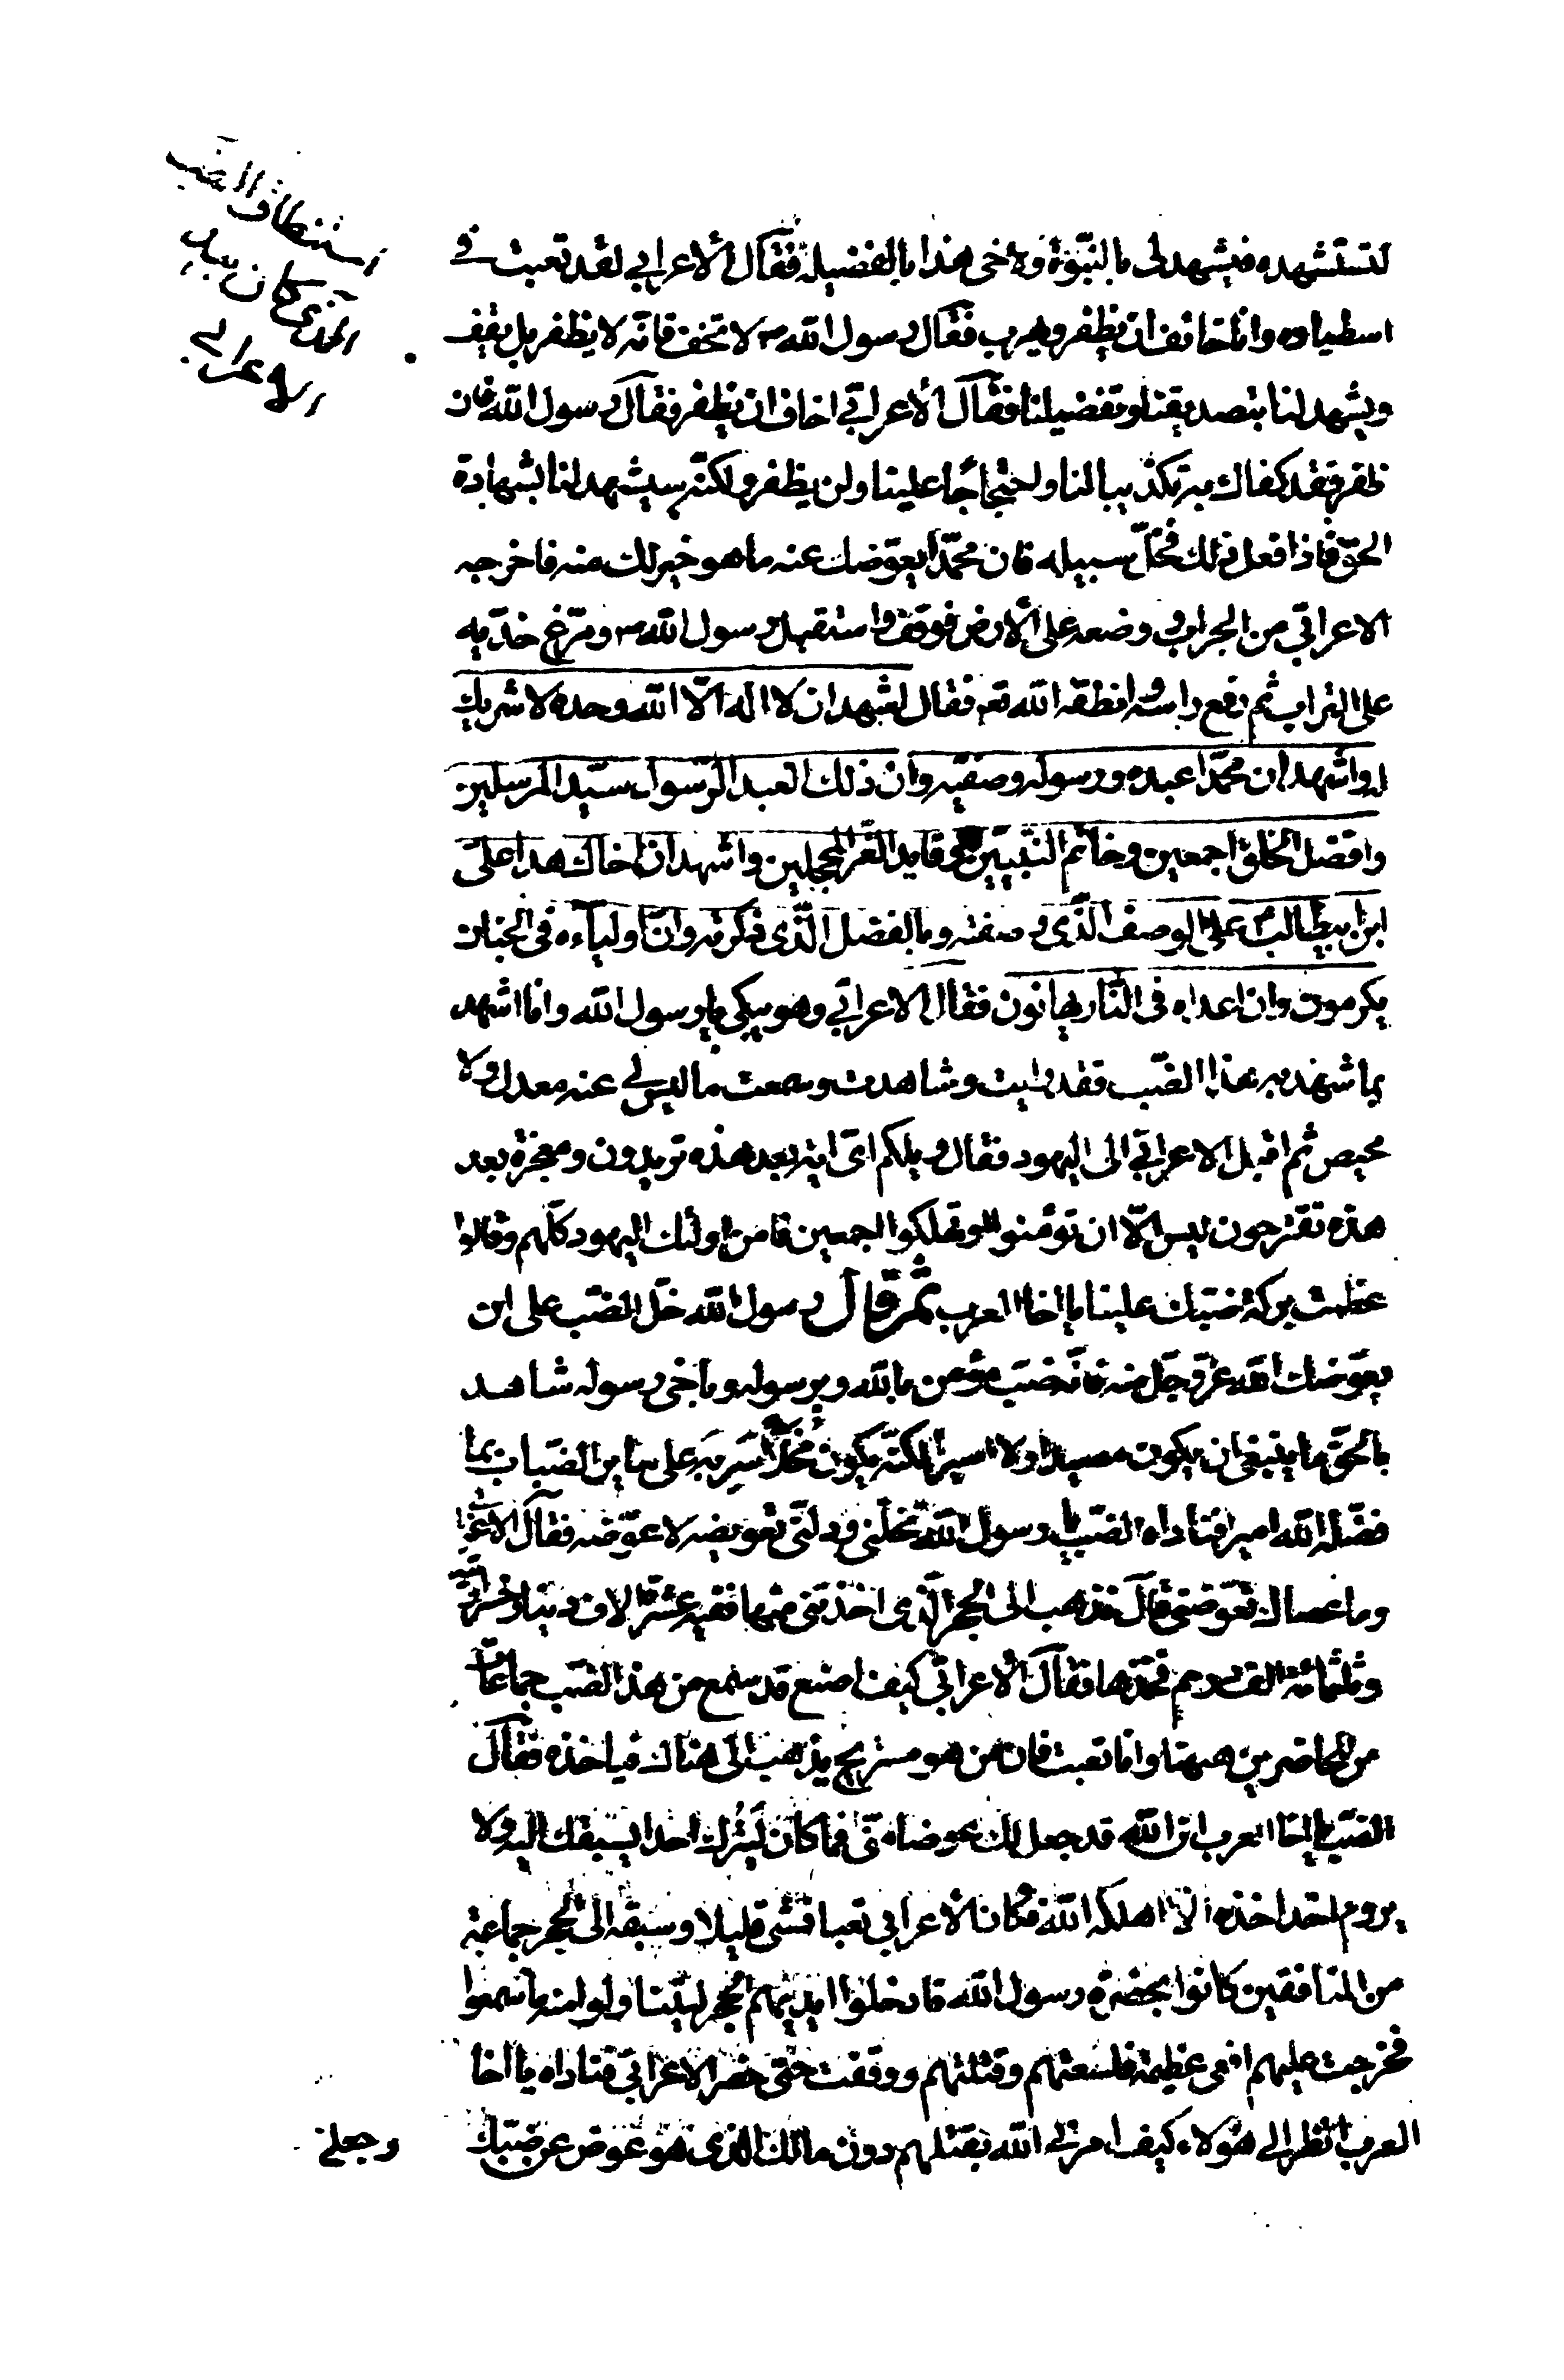 استنطاق الضب
الذي كان بيد
الاعرابي
لتستشهده فيشهد لى بالنبّوة ولاخى هذا بالفضيلة فقال الاعرابي لقد تعبت في
اصطياده وانا خائف ان يظفر ويهرب فقال رسول الله ص لا تخف فانّه لا يظفر بل يقف
ويشهد لنا بتصديقنا وتفضيلنا فقال الاعرابّي اخاف ان يظفر فقال رسول الله فان
ظفر فقد كفاك به تكذيبا لنا واحتجاجا علينا ولن يظفر ولكنّه سيشهد لنا بشهادة
الحقّ فاذا فعل ذلك فخلّ سبيله فان محمّدا يعوّضك عنه ما هو خير لك منه فاخرجه
الاعرابّي من الجراب و وضعه على الأرض فوقف واستقبل رسول الله ص ومرّغ خدّيه
على التراب ثم رفع راسه وانطقه الله تعه فقال اشهد ان لا اله الّا الله وحده لا شريك
له واشهد ان محمّدا عبده ورسوله وصفيّه وان ذلك العبد الرّسول سيّد المرسلين
وافضل الخلق اجمعين وخاتم النّبييّن وقايد الغّر المحجلين واشهد ان اخاك هذا على
ابن ابيطالب ع على الوصف الّذى وصفته وبالفضل الّذى ذكرته وانّ اولياءه فى الجنان
يكرمون وان اعداه فى النّار يهانون فقال الاعرابّي وهو يبكى يا رسول الله وانا اشهد
بما شهد به هذا الضّب فقد رايت وشاهدت وسمعت ما ليس لي عنه معدل ولا
محيص ثم اقبل الاعرابّي الى اليهود فقال ويلكم اىّ اية بعد هذه تريدون ومعجزة بعد
هذه تقترحون ليس الّا ان تؤمنوا او تهلكوا اجمعين فامن اولئك اليهود كلّهم وقالوا
عظمت بركة ضبّك علينا يا اخا العرب ثمّ قال رسول الله خلّ الضّب على ان
يعوّضك الله عزّ وجلّ منه فانّه ضبّ مؤمن بالله وبرسوله وباخى رسوله شاهد
بالحقّ ما ينبغى ان يكون مصيدا ولا اسيرا لكنّه يكون مخلّا سربه على ساير الضّباب بما
فضّله الله اميرا فناداه الضّب يا رسول الله فخلّنى وولّنى تعويضه لاعوّضه فقال الاعرابي
وما عساك تعوّضنى قال تذهب الى الجحر الّذى اخذتنى منه ففيه عشرة الاف دينار خسروانّيه
وثلثمائة الف درهم فخذها فقال الاعرابّي كيف اصنع قد سمع من هذا الضّب جماعات
من الحاضرين ههنا وانا تعب فان من هو مستريح يذهب الى هناك فياخذه فقال
الضّب يا اخا العرب انّ الله قد جعل لك عوضا منّى فما كان ليترك احدا يسبقك اليه ولا
يروم احد اخذه الّا اهلكه الله وكان الاعرابي تعبا فمشى قليلا وسبقه الى الجحر جماعة
من المنافقين كانوا بحضرة رسول الله فادخلوا ايديهم الجحر ليتناولوا منه ما سمعوا
فخرجت عليهم افعى عظيمة فلسعتهم وقتلتهم ووقفت حتى حضر الاعرابّي فناداه يا اخا
العرب انظر الى هؤلاء كيف امرني الله بقتلهم دون مالك الذى هو عوض عن ضبّك
وجعلني